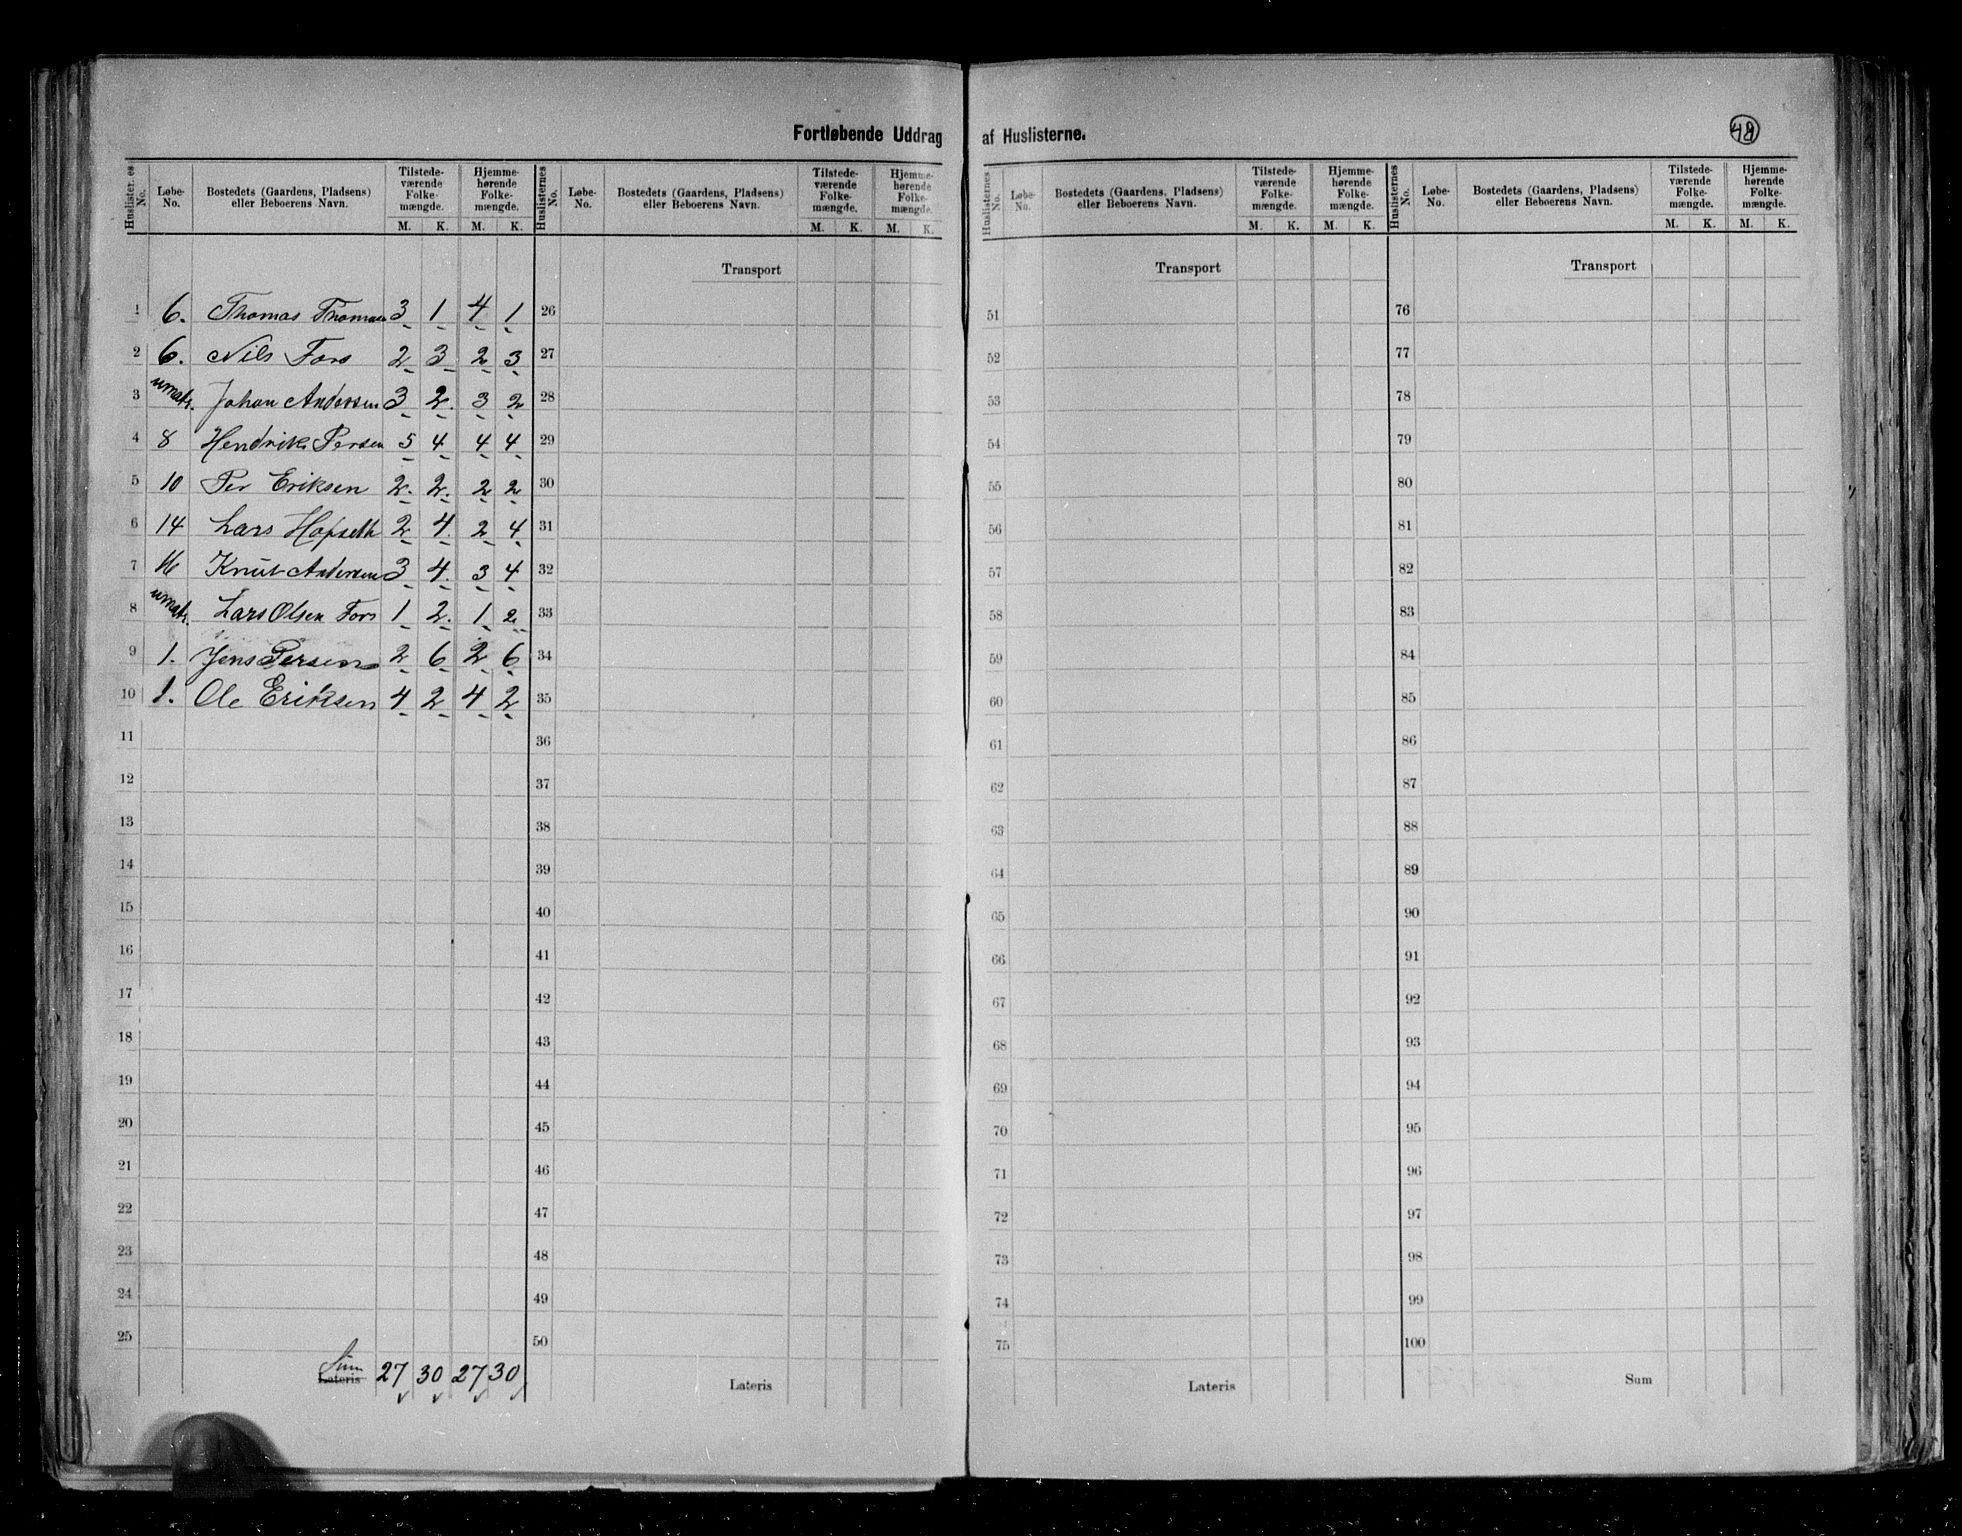 Fortløbende Uddrag af Huslisternes.
48
Huslisternes No. Løbe-No. Bostedets (Gaardens, Pladsens) eller Beboerens Navn. Tilstedeværende Folkemængde. M. K. Hjemmehørende Folkemængde. M. K.
1 6. Thomas Thomas 3 1 4 1
2 6. Nils Fors 2 3 2 3
3 umatr. Johan Andersen 3 2. 3 2
4 8 Hendrik Persen 5 4 4 4
5 10 Per Eriksen 2. 2. 2 2
6 14 Lars Hopseth 2 4. 2 4
7 16 Knut Andersen 3 4. 3 4
8 umatr. Lars Olsen Fors 1 2. 1 2
9 1. Jens Persen 2 6 2 6
10 1. Ole Eriksen 4 2 4 2
11
12
13
14
15
16
17
18
19
20
21
22
23
24
25
Sum
Lateris 27 30 27 30
Huslisternes No. Løbe-No. Bostedets (Gaardens, Pladsens) eller Beboerens Navn. Tilstedeværende Folkemængde. M. K. Hjemmehørende Folkemængde. M. K.
Transport
26
27
28
29
30
31
32
33
34
35
36
37
38
39
40
41
42
43
44
45
46
47
48
49
50
Lateris
Huslisternes No. Løbe-No. Bostedets (Gaardens, Pladsens) eller Beboerens Navn. Tilstedeværende Folkemængde. M. K. Hjemmehørende Folkemængde. M. K.
Transport
51
52
53
54
55
56
57
58
59
60
61
62
63
64
65
66
67
68
69
70
71
72
73
74
75
Lateris
Huslisternes No. Løbe-No. Bostedets (Gaardens, Pladsens) eller Beboerens Navn. Tilstedeværende Folkemængde. M. K. Hjemmehørende Folkemængde. M. K.
Transport
76
77
78
79
80
81
82
83
84
85
86
87
88
89
90
91
92
93
94
95
96
97
98
99
100
Sum